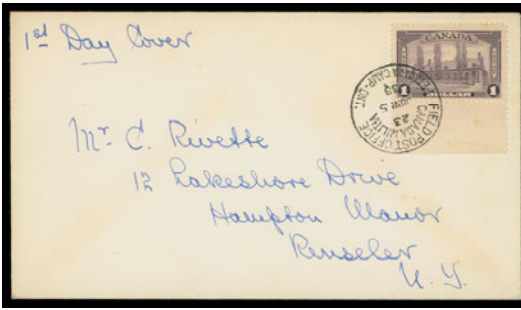 1st Day Cover
CANADA
1 1
FIELD POST OFFICE
CANADA MILITIA
23
CAMP. ONT.
Mr. C. Rivette
12 Lakeshore Drive
Hampton Manor
Renseler
N. Y.